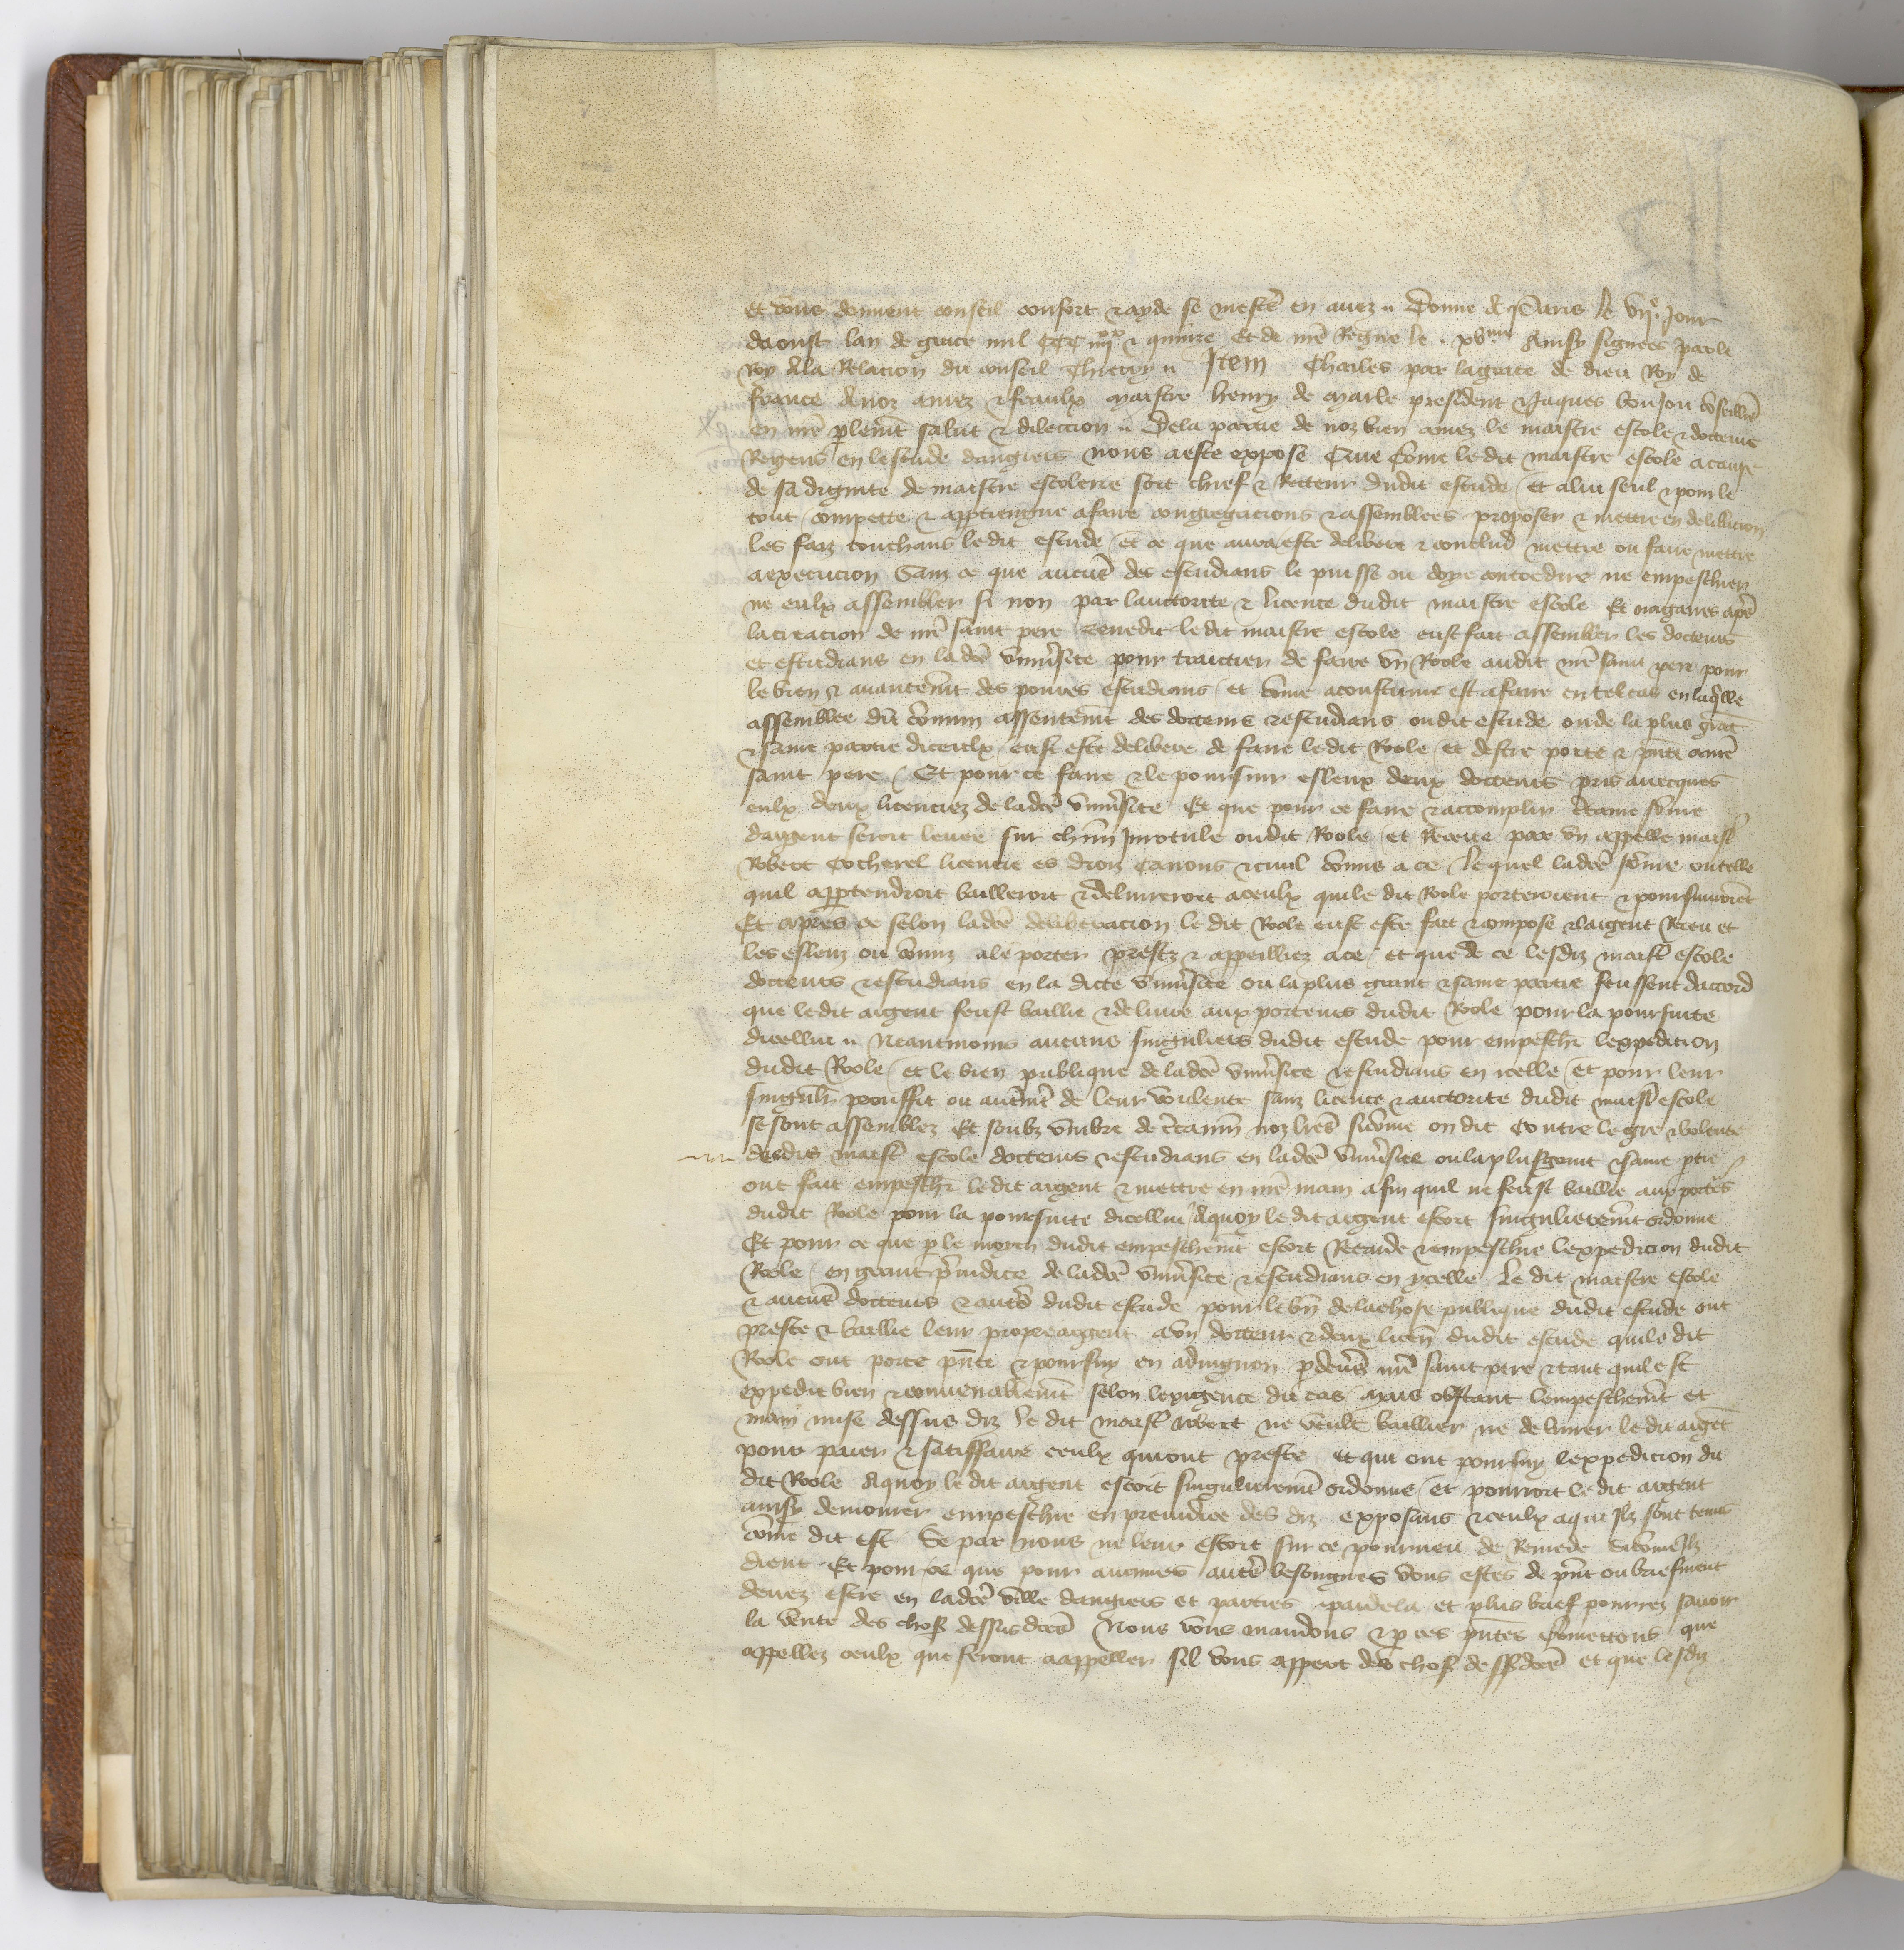 et vous donnent conseil confort & ayde se mestr̄ en avez Donne a Paris le vije jour
daoust lan de grace mil ccc iiijxx & quinze Et de nr̄e Regne le xvme Ainsy signees par le
Roy a la Relacion du conseil Thierry Item Charles par la grace de dieu Roy de
france A noz amez & feaulx maistre henry de marle president & Jaques boujou cōseill̄r
en nr̄e plem̄t salut & dileccion Dela partie de noz bien amez le maistre escole & docteurs
Regens en lestude dangiers nous a este expose Que cōme ledit maistre escole a cause
de sa dignite de maistre escolerie soit chief & Recteur dudit estude et a lui seul & pour le
tout compette & appartiengne a faire congregacions & assemblees proposer & mettre en delib̄acion
les faiz touchans ledit estude et ce que aura este delibere & conclud mettre ou faire mettre
a execucion Sanz ce que aucūs des estudians le puisse ou doye contredire ne empeschier
ne eulx assembler si non par lauctorite & licence dudit maistre escole Et nagaires apr̄s
la creacion de nr̄e saint pere Benedit ledit maistre escole eust fait assembler les docteurs
et estudians en lad̄ce univ̄site pour traictier de faire un Roole audit nr̄e saint pere pour
le bien & avancem̄t des povres estudians et cōme acoustume est a faire en tel cas en laq̄lle
assemblee du cōmun assentem̄t des docteurs & estudians oudit estude ou de la plus grāt
& saine partie diceulx eust este delibere de faire ledit Roole et destre porte & p̄nte a nr̄e
saint pere Et pour ce faire & le poursuir esleux deux docteurs pris avecques
eulx deux licenciez de lad̄ce univ̄site Et que pour ce faire & acomplir c̄taine sōme
dargent seroit levee sur ch̄un inrotule oudit Roole et Receue par un appelle maist̄
Robert Cocherel licencie es droiz canons & civil cōmis a ce lequel lad̄ce sōme ou telle
quil appartendroit bailleroit & delivreroit a ceulx qui le dit Roole porteroient & poursuivroiēt
Et apres ce selon lad̄ce deliberacion le dit Roole eust este fait & compose & largent Receu et
les esleuz ou cōmis a le porter prestz & appeilliez a ce et que de ce lesdiz maist̄ escole
docteurs & estudians en la dicte univ̄site ou la plus grant & saine partie feussent daccord
que ledit argent feust baillie & delivre aux porteurs dudit Roole pour la poursuite
dicellui Neantmoins aucuns singuliers dudit estude pour empesch̄r lexpedicion
dudit Roole et le bien publique de lad̄ce univ̄site & estudians en icelle Et pour leur
singul̄r prouffit ou autrem̄t de leur voulente sanz licence & auctorite dudit maist̄ escole
se sont assemblez Et soubz umbre de c̄tain̄s noz lr̄es si cōme on dit contre le gre & volente
desdis maist̄ escole docteurs & estudians en lad̄ce univ̄site ou la plus grant & saine ptie
ont fait empesch̄r ledit argent & mettre en nr̄e main afin quil ne feust baillie aux port̄s
dudit Roole pour la poursuite dicellui A quoy le dit argent estoit singulierem̄t ordonne
Et pour ce que p le moyen dudit empeschem̄t estoit Retarde & empeschie lexpedicion dudit
Roole en grant p̄iudice de lad̄ce univ̄site & estudians en ycelle Le dit maistre escole
& aucūs docteurs & autr̄s dudit estude pour le biē de la chose publique dudit estude ont
preste & baillie leur propre argent a un docteur & deux licen̄ dudit estude qui le dit
Roole ont porte p̄nte & poursuy en advignon p devers nr̄e saint pere & tant quil est
expedit bien & convenablem̄t selon lexigence du cas Mais obstant lempeschem̄t et
main mise dessus diz le dit maist̄ Robert ne veult baillier ne delivrer le dit argēt
pour paier & satiffaire ceulx qui ont preste et qui ont poursuy lexpedicion du
dit Roole A quoy le dit argent estoit singulierem̄t ordonne et pourroit le dit argent
ainsy demourer empeschie en preiudice des diz exposans & ceulx a qui Ilz sont tenus
cōme dit est Se par nous ne leur estoit sur ce pourveu de Remede si cōme Ilz
dient Et pour ce que pour aucunes autr̄s besongnes vous estes de p̄nt ou briefment
devez estre en lad̄ce ville dangiers et parties par dela et plus brief pourrez savoir
la verite des choses dessusd̄ces Nous vous mandons & p ces p̄ntes cōmettons que
appellez ceulx qui feront a appeller sil vous appert des choses dessd̄ces et que lesdiz